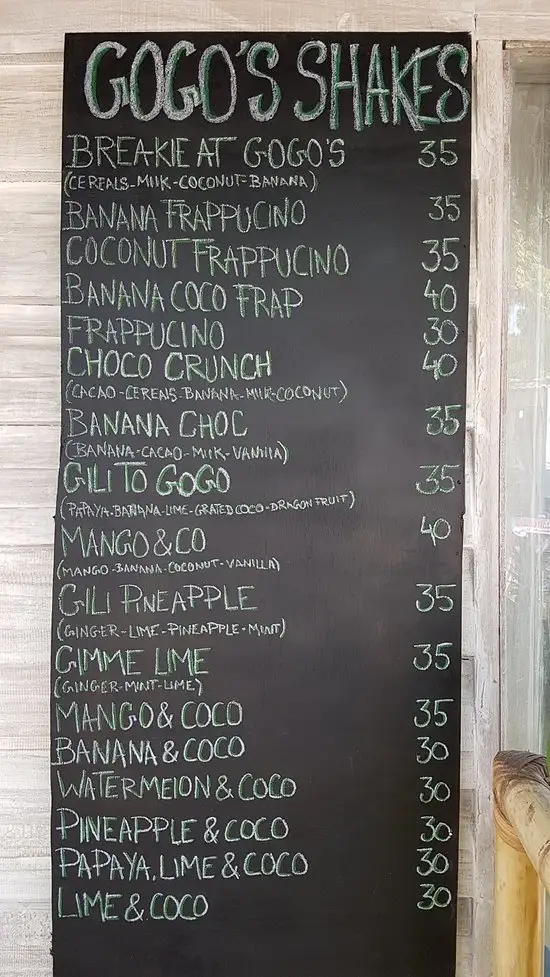 GOGO'S SHAKES
BREAKIE AT GOGO'S 35
(CEREALS-MILK-COCONUT-BANANA)
BANANA FRAPPUCINO 35
COCONUT FRAPPUCINO 35
BANANA COCO FRAP 40
FRAPPUCINO 30
CHOCO CRUNCH 40
(CACAO-CEREALS-BANANA-MILK-COCONUT)
BANANA CHOC 35
(BANANA-CACAO-MILK-VANILLA)
GILI TO GOGO 35
(PAPAYA-BANANA-LIME-GRATED COCO-DRAGON FRUIT)
MANGO & CO 40
(MANGO-BANANA-COCONUT-VANILLA)
GILI PINEAPPLE 35
(GINGER-LIME-PINEAPPLE-MINT)
GIMME LIME 35
(GINGER-MINT-LIME)
MANGO & COCO 35
BANANA & COCO 30
WATERMELON & COCO 30
PINEAPPLE & COCO 30
PAPAYA, LIME & COCO 30
LIME & COCO 30